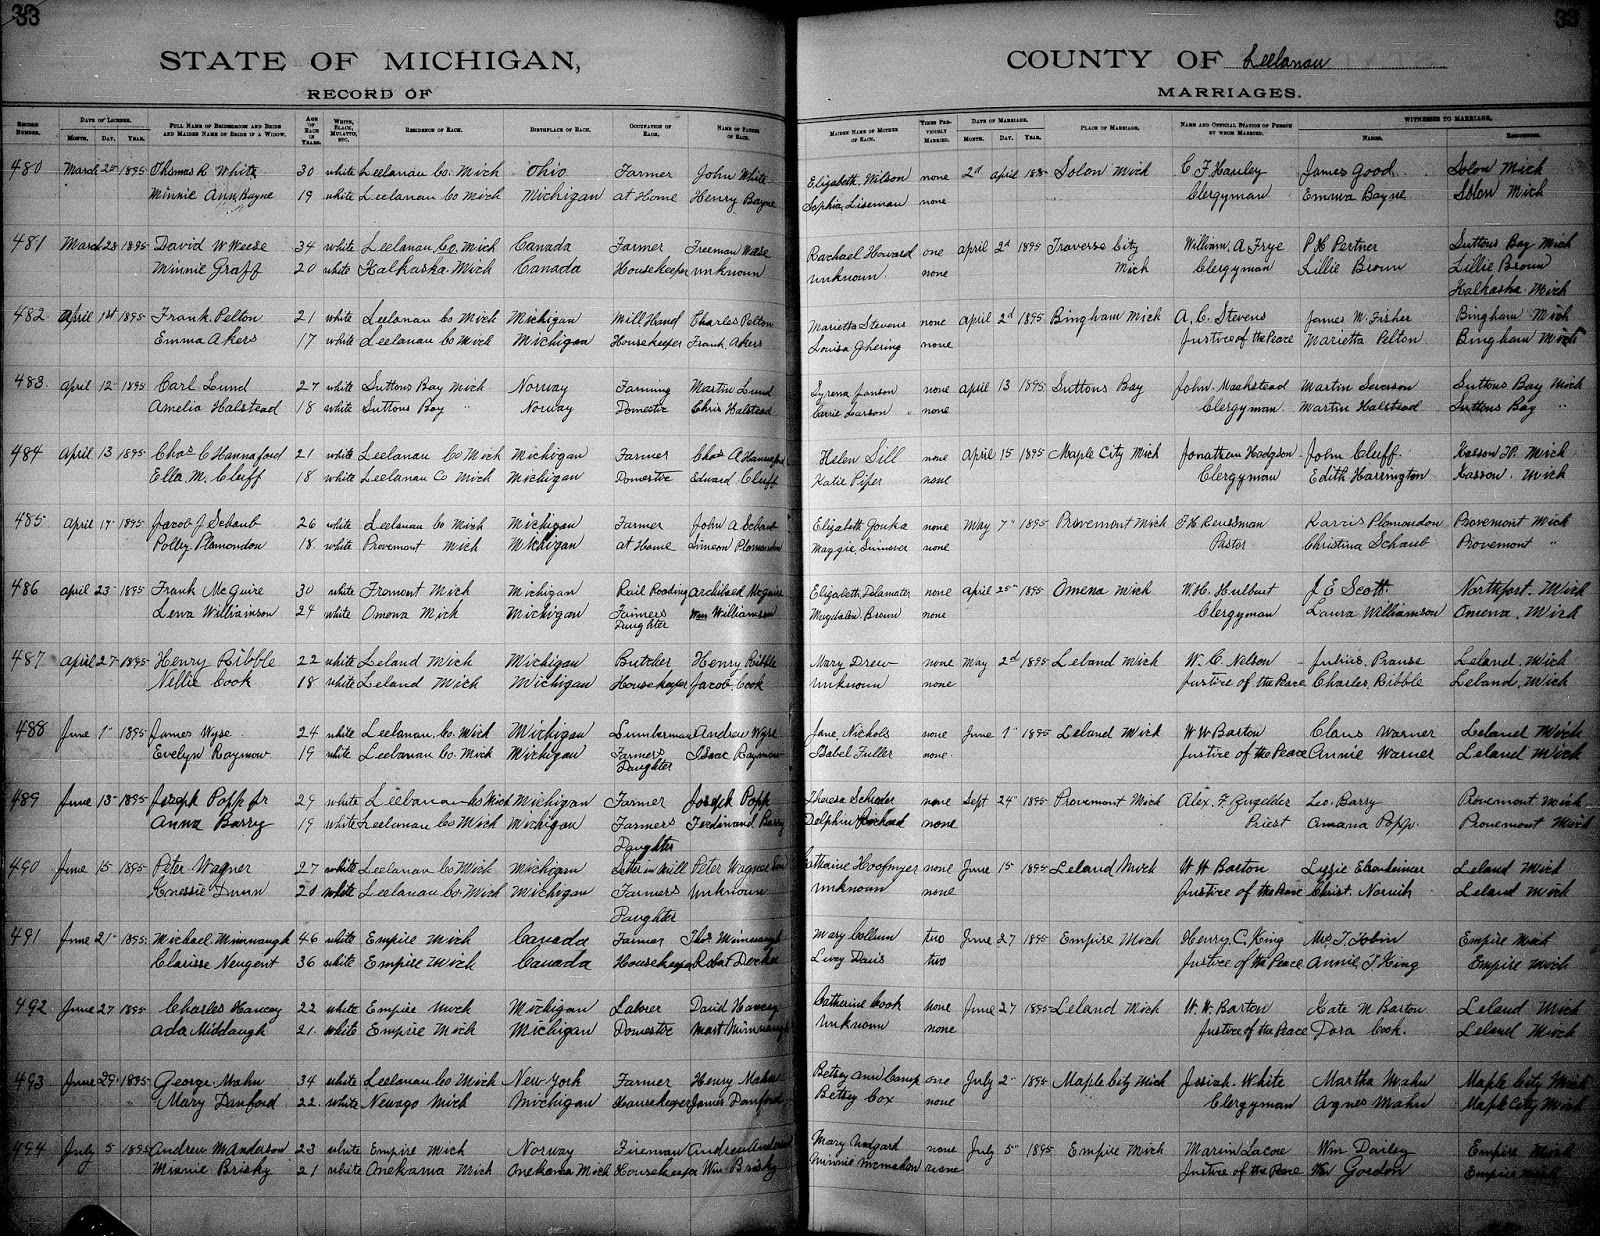 33
33
STATE OF MICHIGAN,
COUNTY OF Leelanau
RECORD OF
MARRIAGES.
RECORD NUMBER. DATE OF LICENSE. MONTH. DAY. YEAR. FULL NAME OF BRIDEGROOM AND BRIDE AND MAIDEN NAME OF BRIDE IF A WIDOW. AGE OF EACH IN YEARS. WHITE, BLACK, MULATTO, ETC. RESIDENCE OF EACH. BIRTHPLACE OF EACH. OCCUPATION OF EACH. NAME OF FATHER OF EACH. MAIDEN NAME OF MOTHER OF EACH. TIMES PREVIOUSLY MARRIED. DATE OF MARRIAGE. MONTH. DAY. YEAR. PLACE OF MARRIAGE. NAME AND OFFICIAL STATION OF PERSON BY WHOM MARRIED. WITNESSES TO MARRIAGE, NAMES. RESIDENCE.
480 March 25 1895 Thomas R White 30 white Leelanau Co. Mich Ohio Farmer John White Elizabeth Wilson none 2d april 1895 Solon Mich C F Hauley James Good Solon Mich
Minnie Ann Bayne 19 white Leelanau Co Mich Michigan at Home Henry Bayne Sophia Liseman none Clergyman Emma Bayne Solon Mich
481 March 28 1895 David W Weese 34 white Leelanau Co. Mich Canada Farmer Freeman Weese Rachael Howard one april 2d 1895 Traverse City William A Frye P H Pertner Suttons Bay Mich
Minnie Graff 20 white Kalkaska Mich Canada Housekeeper unknown unknown none Mich Clergyman Lillie Brown Lillie Brown
Kalkaska Mich
482 April 1st 1895 Frank Pelton 21 white Leelanau Co Mich Michigan Mill Hand Charles Pelton Marietta Stevens none april 2d 1895 Bingham Mich A. C. Stevens James W. Fisher Bingham Mich
Emma Akers 17 white Leelanau Co Mich Michigan Housekeeper Frank Akers Louisa Ghering none Justice of the Peace Marietta Pelton Bingham Mich
483 april 12 1895 Carl Lund 27 white Suttons Bay Mich Norway Farming Martin Lund Syrena Janson none april 13 1895 Suttons Bay John Maakstead Martin Severson Suttons Bay Mich
Amelia Halstead 18 white Suttons Bay " Norway Domestic Chris Halstead Carrie Larson none Clergyman Martin Halstead Suttons Bay "
484 april 13 1895 Chas C Hannaford 21 white Leelanau Co Mich Michigan Farmer Chas A Hannaford Helen Sill none april 15 1895 Maple City Mich Jonathan Hodgson John Cluff Kasson TP. Mich
Ella M. Cluff 18 white Leelanau Co Mich Michigan Domestic Edward Cluff Katie Piper none Clergyman Edith Harrington Kasson Mich
485 april 17 1895 Jacob J Schaub 26 white Leelanau Co Mich Michigan Farmer John A Schaub Elizabeth Jouka none May 7" 1895 Provemont Mich F H Reussman Karris Plamondon Provemont Mich
Polley Plamondon 18 white Provemont Mich Michigan at Home Simeon Plamondon Maggie none Pastor Christina Schaub Provemont "
486 april 23 1895 Frank McGuire 30 white Fremont Mich Michigan Rail Roading Archibald McGuire Elizabeth Delamater none april 25 1895 Omena Mich W. H. Hulburt J E Scott Northport Mich
Lena Williamson 24 white Omena Mich Michigan Farmers Daughter Wm Williamson Magdalen Brown none Clergyman Laura Williamson Omena, Mich
487 april 27 1895 Henry Ribble 22 white Leland Mich Michigan Butcher Henry Ribble Mary Drew none May 2d 1895 Leland Mich W. C. Nelson Julius Prause Leland, Mich
Nellie Cook 18 white Leland Mich Michigan Housekeeper Jacob Cook unknown none Justice of the Peace Charles Ribble Leland, Mich
488 June 1" 1895 James Wyse 24 white Leelanau Co. Mich Michigan Lumberman Andrew Wyse Jane Nichols none June 1" 1895 Leland Mich W W Barton Claus Warner Leland Mich
Evelyn Raymow 19 white Leelanau Co. Mich Michigan Farmers Daughter Isaac Raymow Isabel Fuller none Justice of the Peace Annie Warner Leland Mich
489 June 13 1895 Joseph Popp Jr 29 white Leelanau Co Mich Michigan Farmer Joseph Popp Theresa none Sept 24 1895 Provemont Mich Alex. F Zugelder Leo. Barry Provemont Mich
Anna Barry 19 white Leelanau Co Mich Michigan Farmers Daughter Ferdinand Barry Delphine none Priest amana Popp Provemont Mich
490 June 15 1895 Peter Wagner 27 white Leelanau Co Mich Michigan Setter in Mill Peter Wagner none June 15 1895 Leland Mich W W Barton Lizzie Leland Mich
Dunn 20 white Leelanau Co Mich Michigan Farmers Daughter unknown unknown none Justice of the Peace Christ. Leland Mich
491 June 21" 1895 Michael Mimnaugh 46 white Empire Mich Canada Farmer Thos Mimnaugh Mary Collum two June 27 1895 Empire Mich Henry C. King Mrs T. Tobin Empire Mich
Clarisse Neugent 36 white Empire Mich Canada Housekeeper Robert Decker Lucy Davis two Justice of the Peace Annie T King Empire Mich
492 June 27 1895 Charles Hancey 22 white Empire Mich Michigan Laborer David Hancey Catherine Cook none June 27 1895 Leland Mich W. W. Barton Kate M Barton Leland Mich
Ada Middaugh 21 white Empire Mich Michigan Domestic Mart unknown none Justice of the Peace Dora Cook. Leland Mich
493 June 29 1895 George Mahn 34 white Leelanau Co Mich New York Farmer Henry Mahn Betsey Ann Camp one July 2 1895 Maple City Mich Josiah White Martha Mahn Maple City Mich
Mary Danford 22 white Newago Mich Michigan Housekeeper James Danford Betsey Cox none Clergyman Agnes Mahn Maple City Mich
494 July 5 1895 Andrew M Anderson 23 white Empire Mich Norway Fireman Andrew Anderson Mary none July 5 1895 Empire Mich Marin Lacore Wm Dailey Empire Mich
Minnie Brisky 21 white Onekama Mich Onekama Mich Housekeeper Wm Brisky Minnie McMahon none Justice of the Peace Wm Gordon Empire Mich